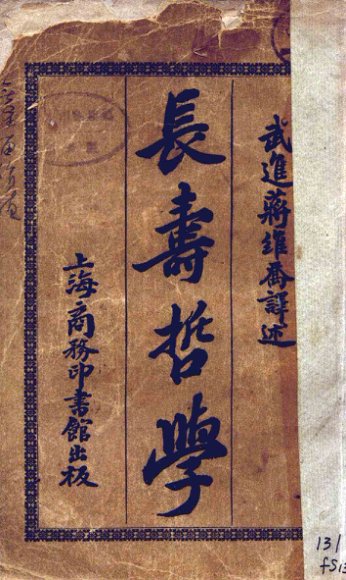 武進蔣維喬譯述
長壽哲學
上海商務印書館出板
131
fS13